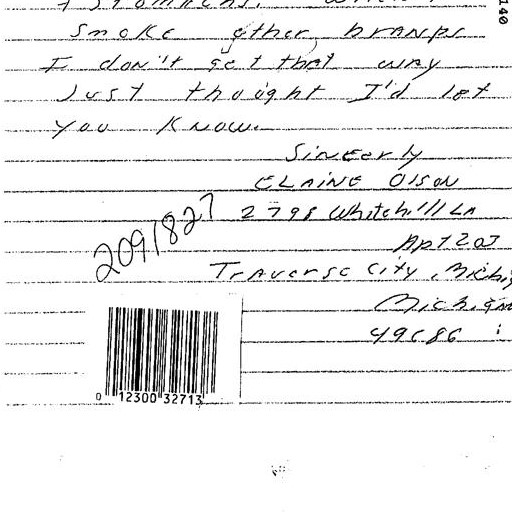 Smoke other brands
I don't get that way
Just thought I'd let
you know.
Sincerly
ELAINE Olson
2798 Whitehill LN
Apt 207
2091827
Traverse City, Michi
Michigan
49686
0 12300 32713
140